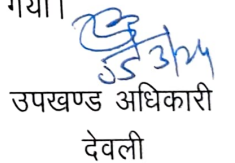 गया।
उपखण्ड अधिकारी
देवली